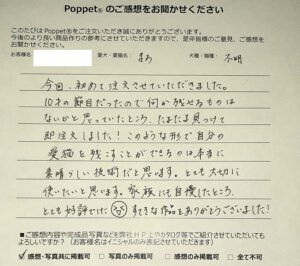 Poppet®のご感想をお聞かせください
このたびはPoppet®をご注文いただき誠にありがとうございます。
今後のより良い商品作りの参考にさせていただきますので、是非皆様のご意見、ご感想を
お聞かせください。
お客様名 愛犬・愛猫名： まわ 犬種・猫種： 不明
今回、初めて注文させていただきました。
10才の節目だったので何か残せるものは
ないかと思っていたところ、たまたま見つけて
即注文しました！このような形で自分の
愛猫を残すことができるのは本当に
素晴らしい技術だと思います。とても大切に
使いたいと思います。家族にも自慢したところ、
とても好評でした すてきな作品をありがとうございました！
■ご感想内容や完成品写真などを弊社HP上やカタログ等でご紹介させていただいても
よろしいですか？（お客様名はイニシャルのみ表記させていただきます）
感想・写真共に掲載可 写真のみ掲載可 感想のみ掲載可 全て不可